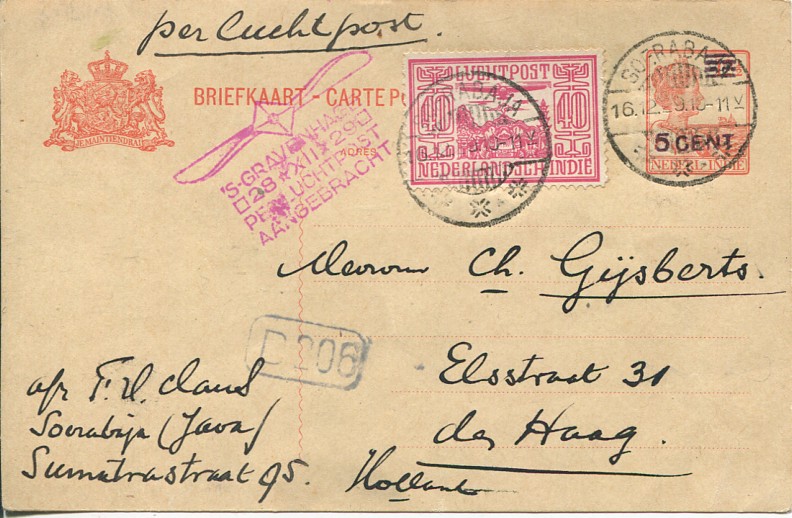 per Luchtpost.
BRIEFKAART - CARTE PO
JE MAINTIENDRAI
'S-GRAVENHAGE
28 XII 29
PER LUCHTPOST
AANGEBRACHT
LUCHTPOST
40 40
NEDERLANDSCH INDIE
SOERABAJA
16.12. 9.10-11V
5 CENT
NEDERL. INDIE
Mevrouw Ch. Gijsberts.
Elsstraat 31
den Haag.
Holland
D 206
afz. F.
Soerabija (Java)
Sumatrastraat 95.